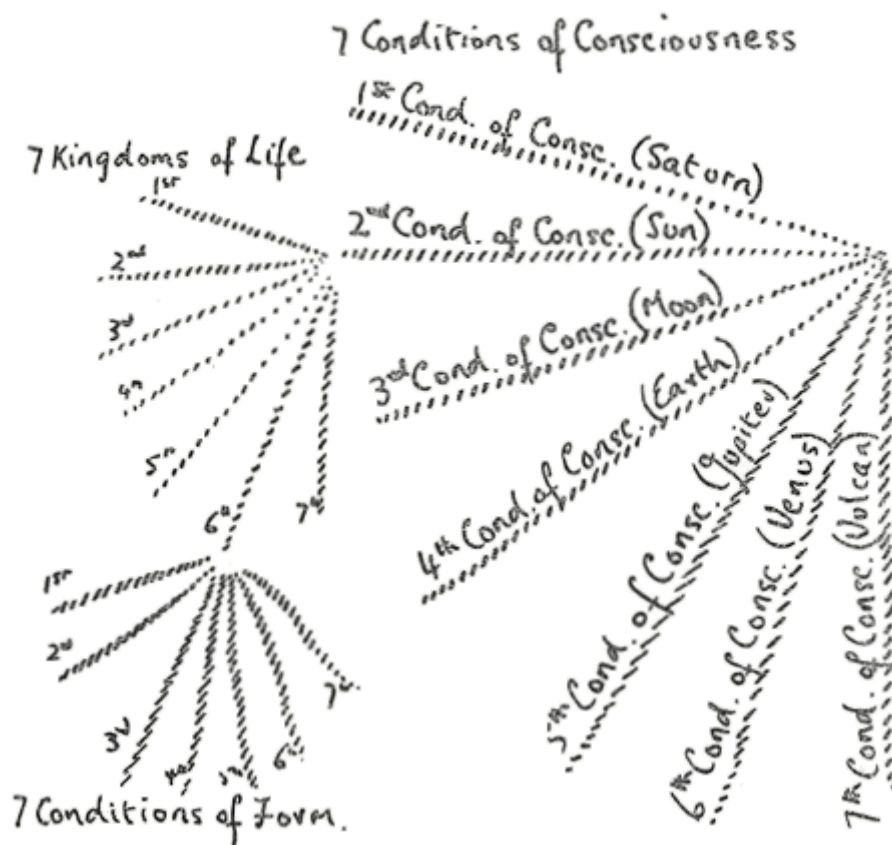 7 Conditions of Consciousness
1st Cond. of Consc. (Saturn)
2nd Cond. of Consc. (Sun)
3rd Cond. of Consc. (Moon)
4th Cond. of Consc. (Earth)
5th Cond. of Consc. (Jupiter)
6th Cond. of Consc. (Venus)
7th Cond. of Consc. (Vulcan)
7 Kingdoms of Life
1st
2nd
3rd
4th
5th
6th
7th
1st
2nd
3rd
4th
5th
6th
7th
7 Conditions of Form.